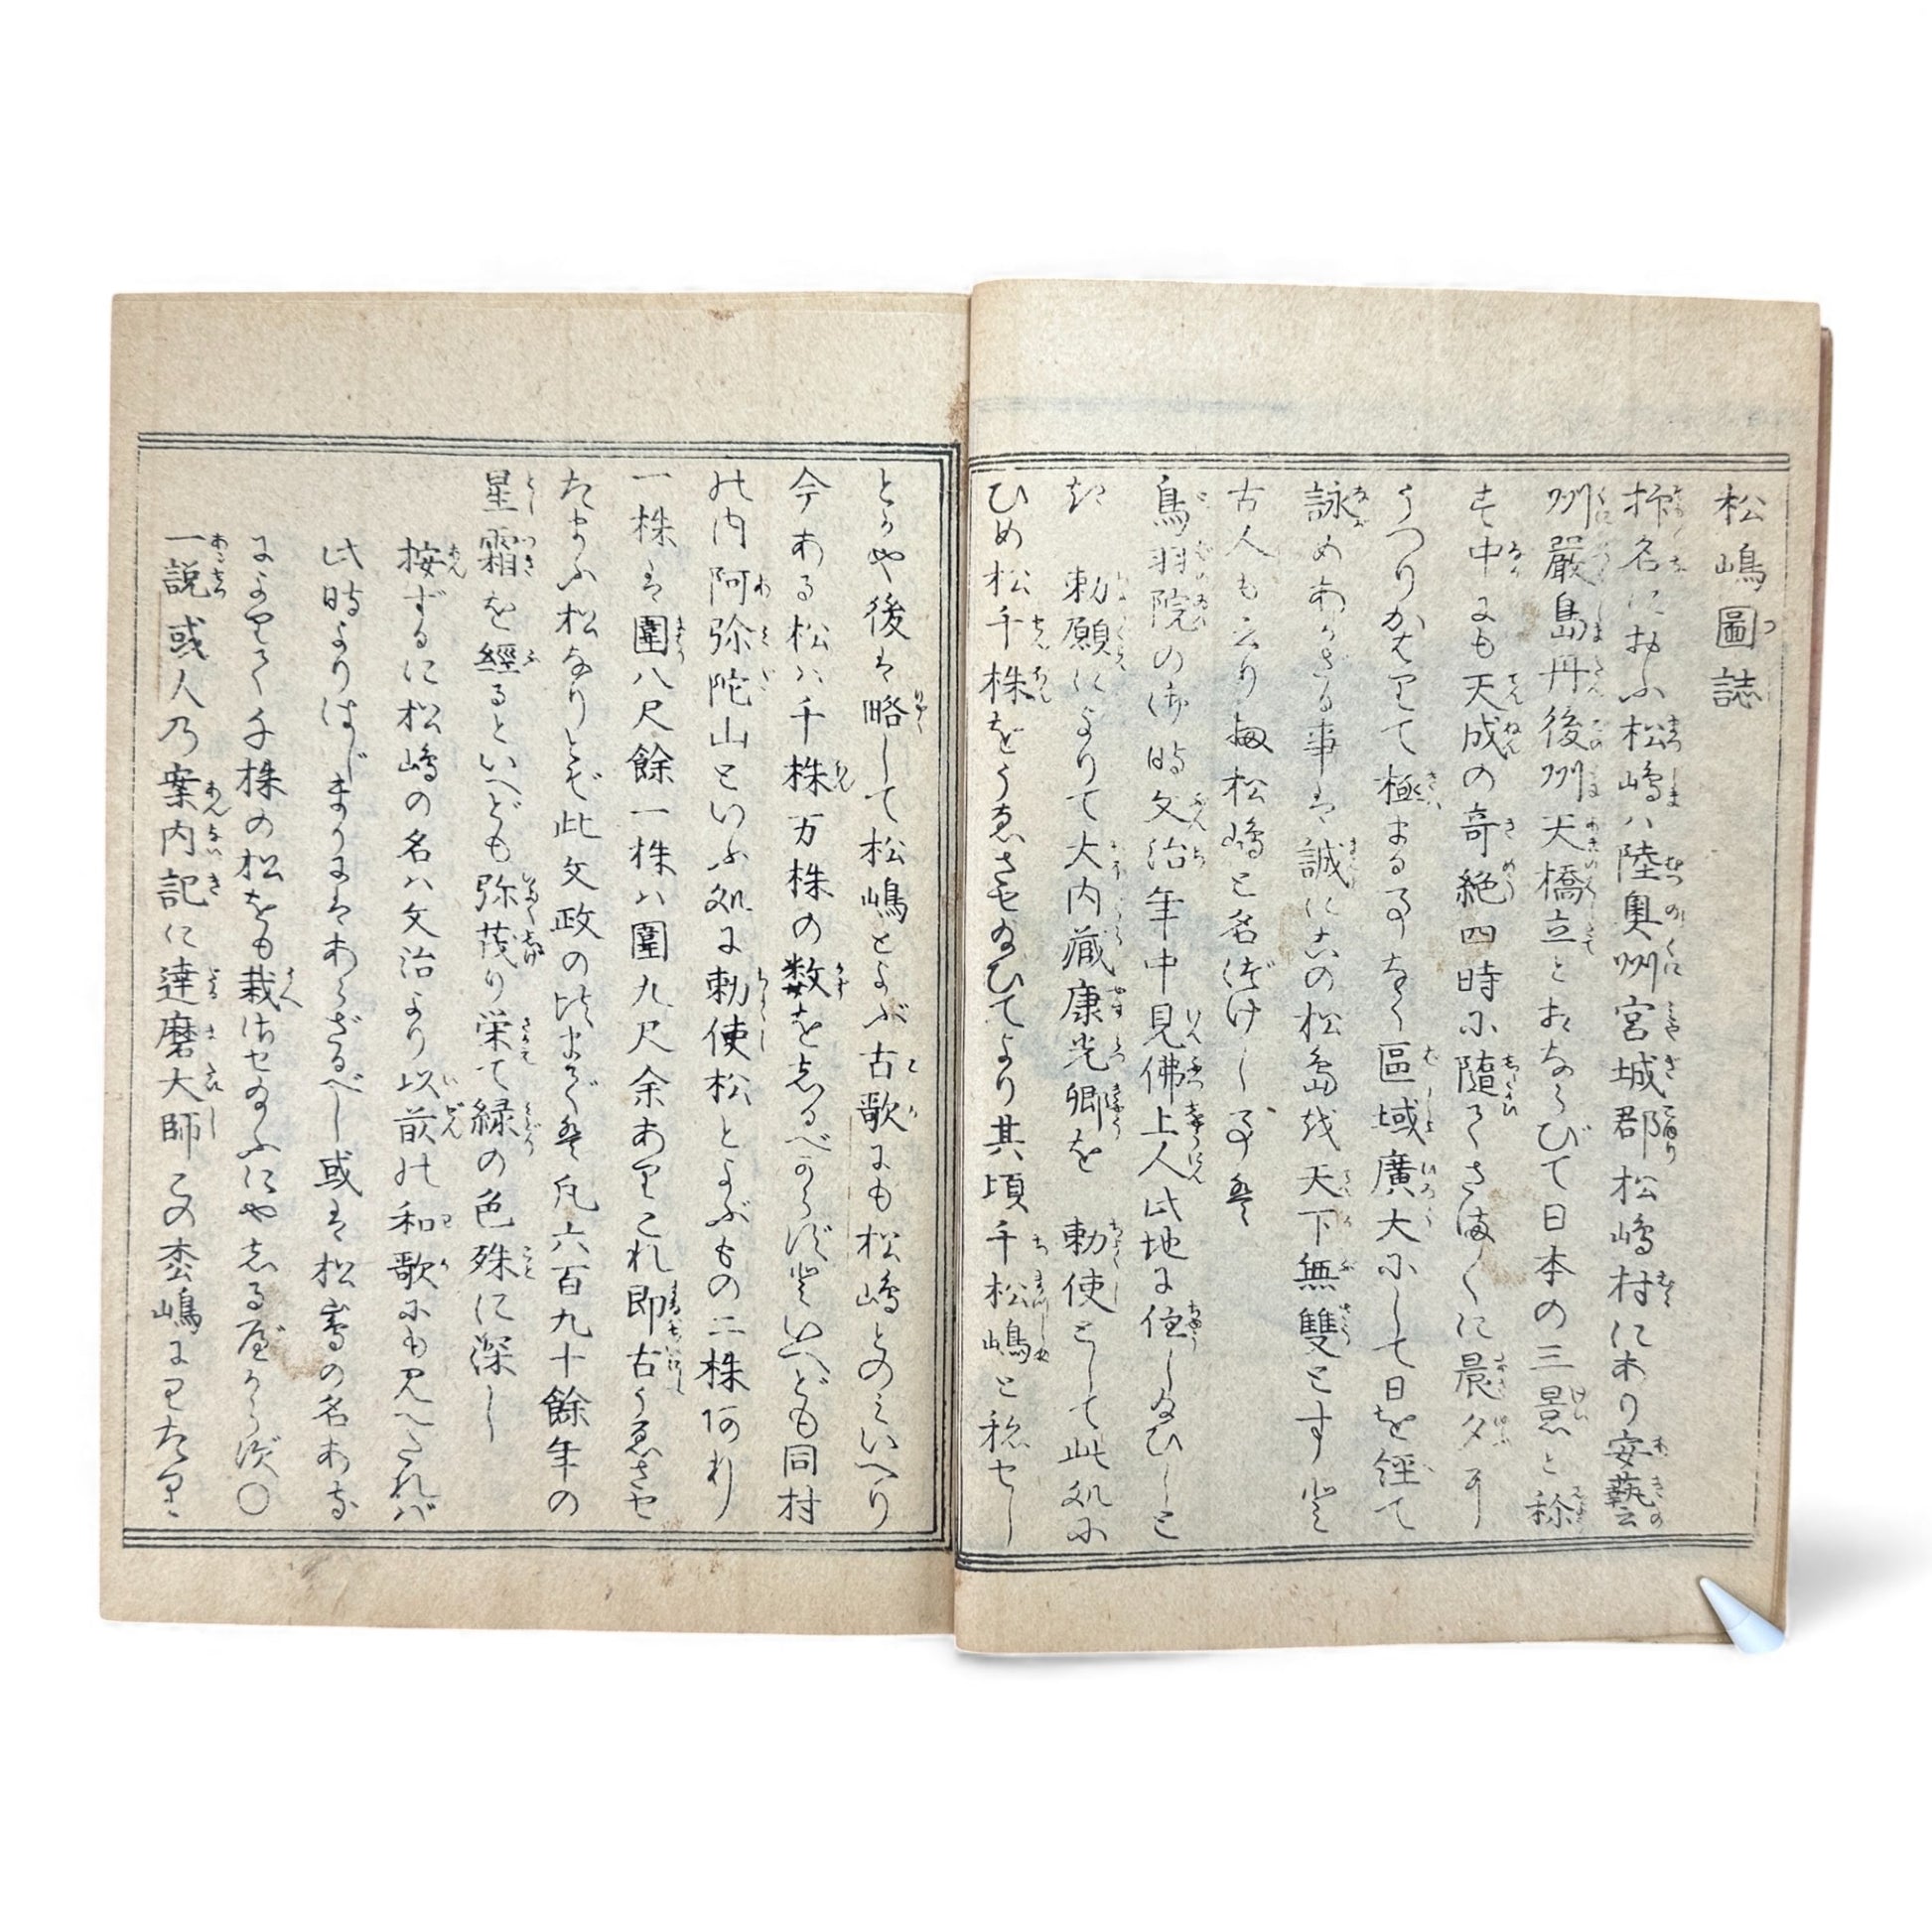 松嶋圖誌
抑名におふ松嶋ハ陸奥州宮城郡松嶋村にあり安藝
州嚴島丹後州天橋立とおならびて日本の三景と称
す中にも天成の奇絶四時に隨てさま〳〵に晨夕に
うつりかはりて極まる事なく區域廣大にして日を経て
詠めあかざる事は誠に此の松島を天下無雙とす
古人も云り扨松嶋と名づけし事は
鳥羽院の御時文治年中見佛上人此地に住し給ひしと
勅願によりて大内藏康光卿を 勅使として此処に
ひめ松千株をうゑさせ給ひてより其頃千松嶋と称せし
とかや後は略して松嶋とよぶ古歌にも松嶋とのミいへり
今ある松ハ千株万株の数をしるべからずといへども同村
の内阿弥陀山といふ処に勅使松とよぶもの二株あり
一株は圍八尺餘一株ハ圍九尺余ありこれ即古うゑさせ
たまふ松なりとぞ此文政の比まで凡六百九十餘年の
星霜を經るといへども弥茂り栄て緑の色殊に深し
按ずるに松嶋の名ハ文治より以前の和歌にも見へたれバ
此時よりはじまりにはあらざるべし或は松島の名あるを
によりて千株の松をも栽させ給ふにやしるべからず〇
一説或人乃案内記に達磨大師この松嶋にわたりま